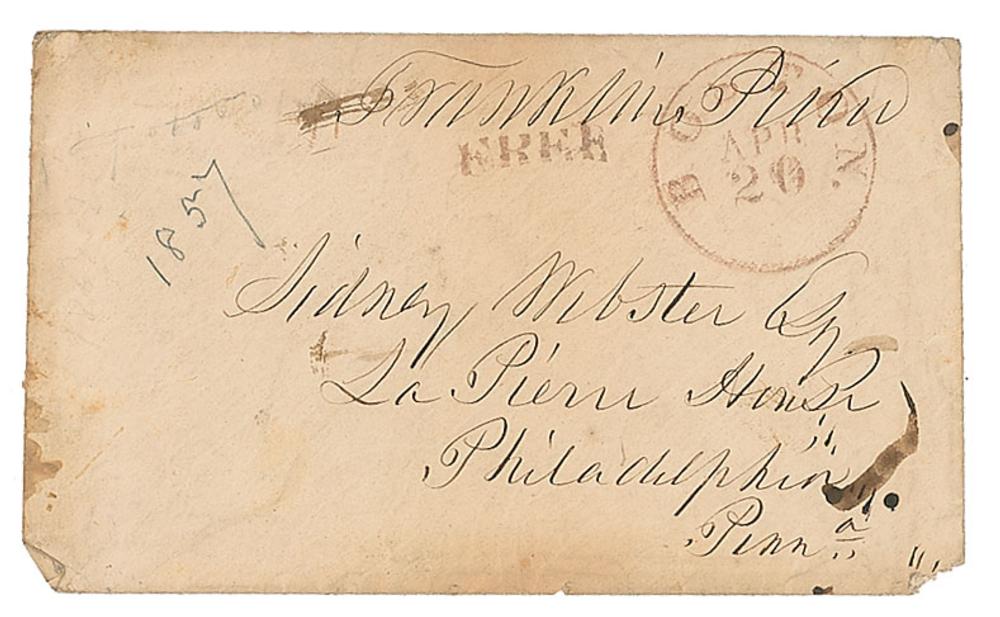 Franklin Pierce
FREE
BOSTON
APR
20
1857
Sidney Webster Esq
La Pierre House
Philadelphia
Penn a